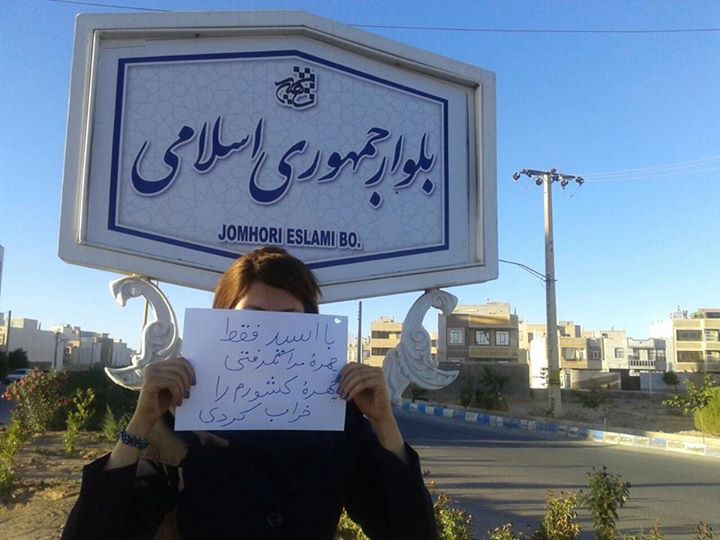 بلوار جمهوری اسلامی
JOMHORI ESLAMI BO.
با اسید فقط
چهرهٔ مرا نگرفتی
چهرهٔ کشورم را
خراب کردی